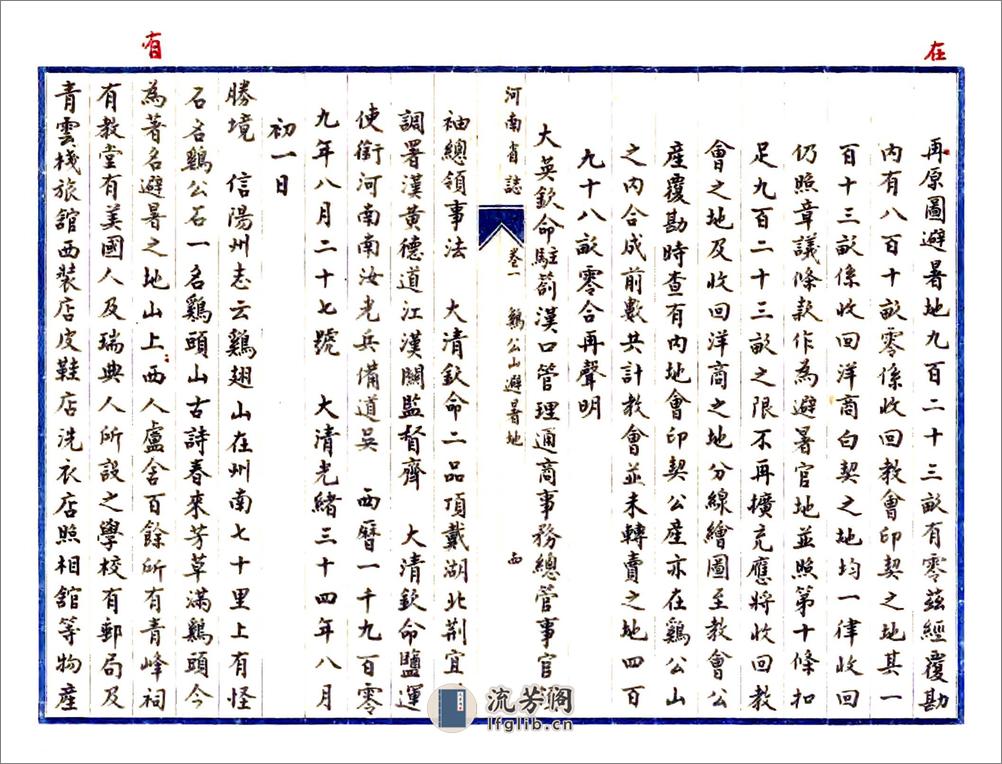 在
再原圖避暑地九百二十三畝有零茲經覆勘
內有八百十畝零係收回教會印契之地其一
百十三畝係收回洋商白契之地均一律收回
仍照章議條款作為避暑官地並照第十條扣
足九百二十三畝之限不再擴充應將收回教
會之地及收回洋商之地分線繪圖至教會公
產覆勘時查有內地會印契公產亦在鷄公山
之內合成前數共計教會並未轉賣之地四百
九十八畝零合再聲明
大英欽命駐劄漢口管理通商事務總管事官
河南省誌 卷一 鷄公山避暑地
袖總領事法 大清欽命二品頂戴湖北荆宜
調署漢黃德道江漢關監督齊 大清欽命鹽運
使銜河南南汝光兵備道吳 西曆一千九百零
九年八月二十七號 大清光緒三十四年八月
初一日
勝境 信陽州志云鷄翅山在州南七十里上有怪
石名鷄公石一名鷄頭山古詩春來芳草滿鷄頭今
為著名避暑之地山上西人廬舍百餘所有青峰祠
有教堂有美國人及瑞典人所設之學校有郵局及
青雲棧旅舘西裝店皮鞋店洗衣店照相舘等物產
有
流芳閣
lfglib.cn